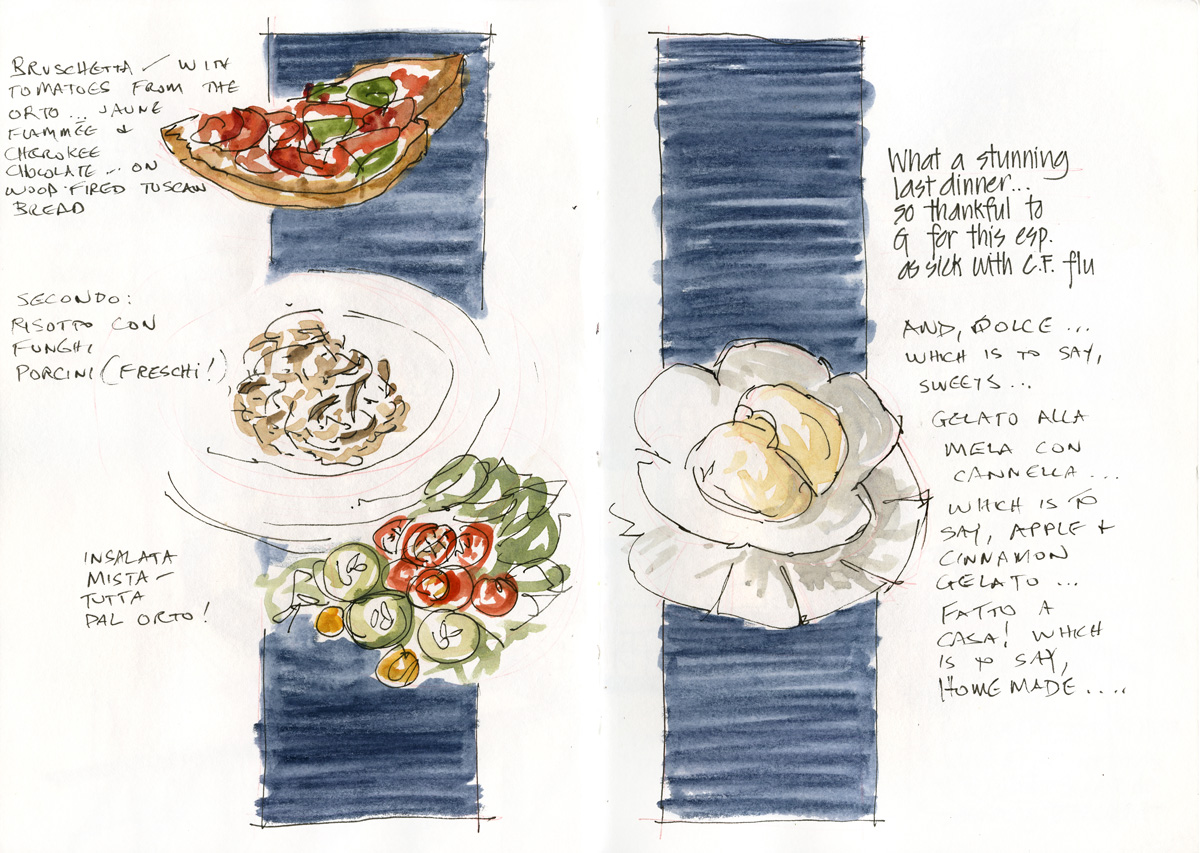 BRUSCHETTA - WITH
TOMATOES FROM THE
ORTO ... JAUNE
FLAMMÉE &
CHEROKEE
CHOCOLATE ... ON
WOOD-FIRED TUSCAN
BREAD
SECONDO:
RISOTTO CON
FUNGHI
PORCINI (FRESCHI!)
INSALATA
MISTA -
TUTTA
DAL ORTO!
What a stunning
last dinner...
so thankful to
G for this esp.
as sick with C.F. flu
AND, DOLCE ...
WHICH IS TO SAY,
SWEETS ...
GELATO ALLA
MELA CON
CANNELLA ....
WHICH IS TO
SAY, APPLE +
CINNAMON
GELATO ...
FATTO A
CASA! WHICH
IS TO SAY,
HOME MADE ....